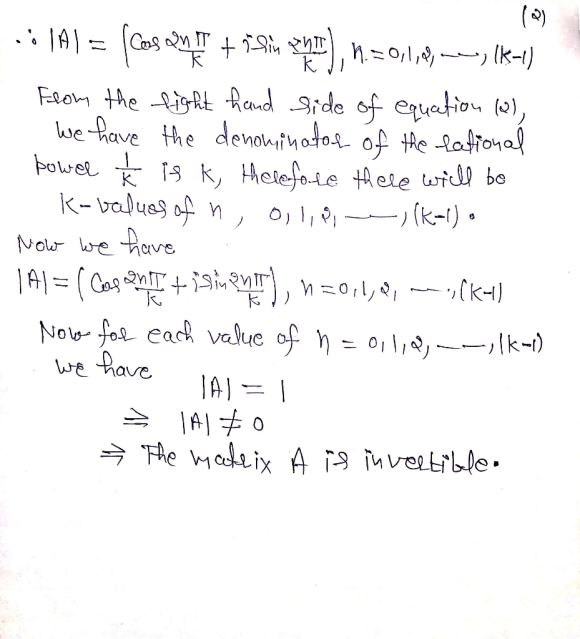 (2)
∴ |A| = (Cos 2nπ/K + i Sin 2nπ/K), n = 0,1,2, ——, (K-1)
From the right hand side of equation (2),
we have the denominator of the rational
power 1/K is K, therefore there will be
K-values of n, 0,1,2, ——, (K-1).
Now we have
|A| = (Cos 2nπ/K + i Sin 2nπ/K), n=0,1,2, ——, (K-1)
Now for each value of n = 0,1,2, ——, (K-1)
we have
|A| = 1
⇒ |A| ≠ 0
⇒ The matrix A is invertible.